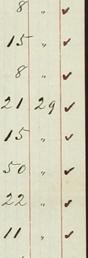 8 " ✓
15 " ✓
8 " ✓
21 29 ✓
15 " ✓
50 " ✓
22 " ✓
11 " ✓